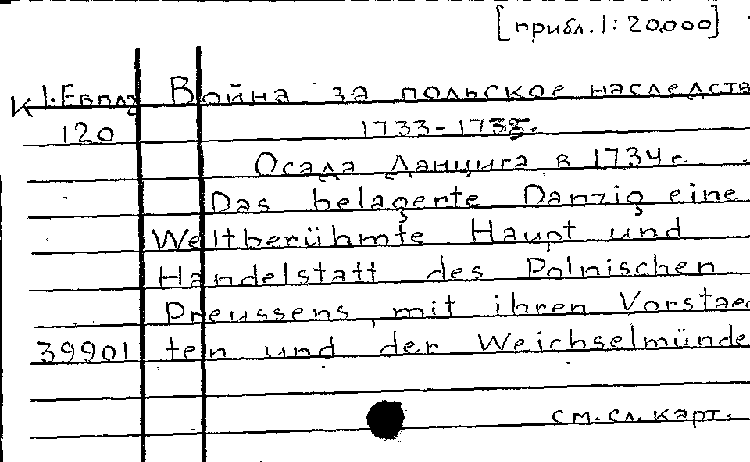 [прибл. 1:20.000]
К 1.Евплз Война за польское наследств
120 1733-1735.
Осада Данцига в 1734 г.
Das belagerte Danzig eine
Weltberühmte Haupt und
Handelstatt des Polnischen
Preussens, mit ihren Vorstaed
39901 ten und der Weichselmünde
см. сл. карт.